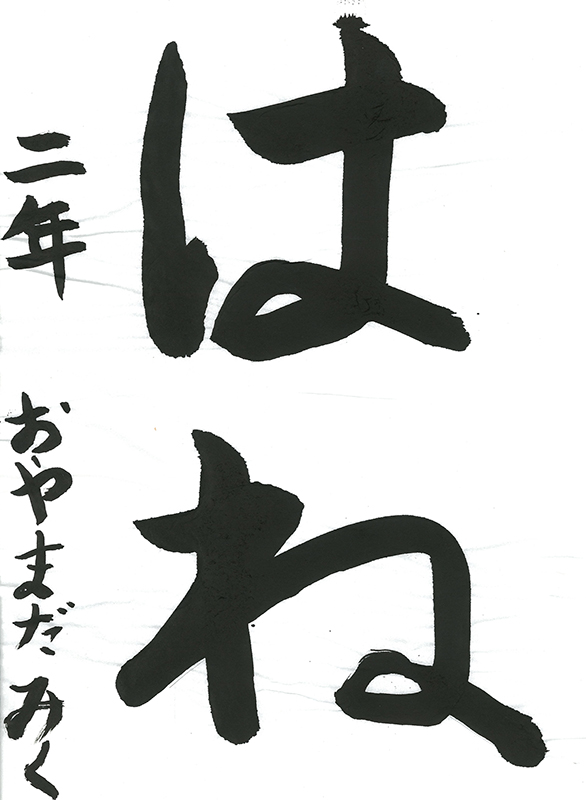 はね
二年 おやまだみく